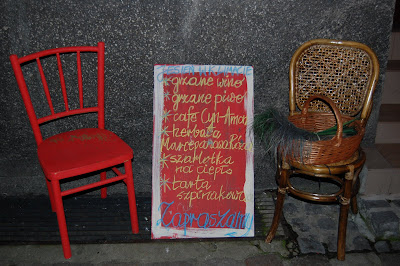 JESIEŃ W KLIMACIE
* grzane wino
* grzane piwo
* cafe Cyn-Amon
* herbata
Marcepanowa Róża
* szarlotka
na ciepło
* tarta
szpinakowa
Zapraszamy